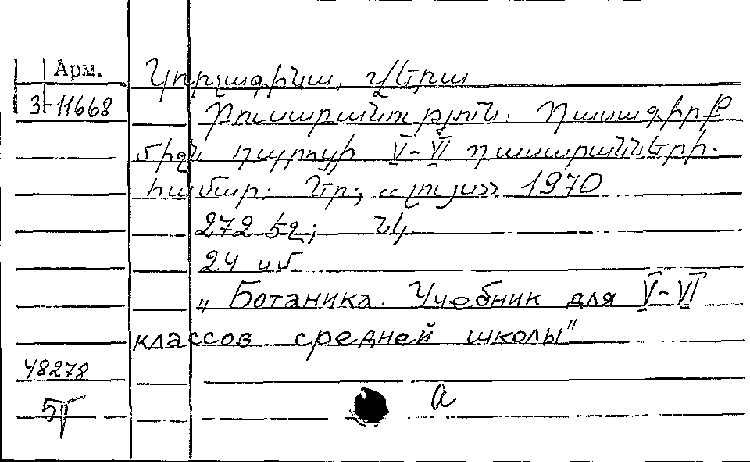 Арм.
Կորչագինա, Վերա
3-11668
Բուսաբանություն. Դասագիրք
միջն դպրոցի V-VI դասարանների
համար. Եր., «Լույս» 1970
272 էջ; նկ.
24 սմ
„Ботаника. Учебник для V-VI
классов средней школы"
48278
a